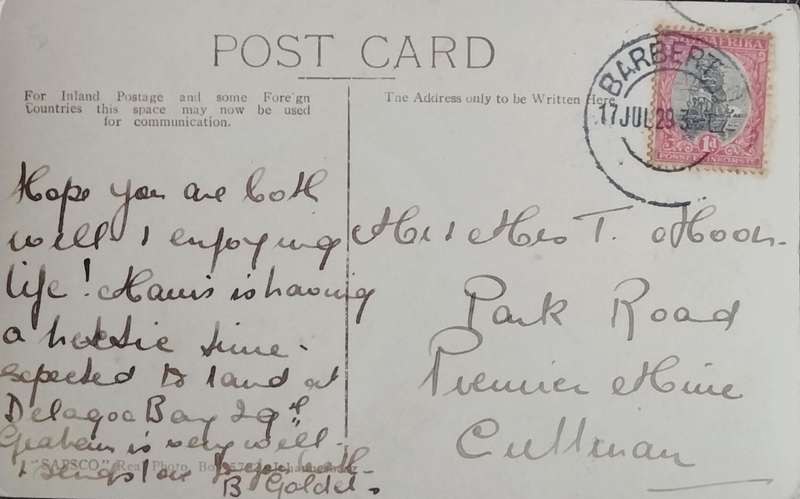 POST CARD
For Inland Postage and some Foreign
Countries this space may now be used
for communication.
The Address only to be Written Here
BARBERT
17 JUL 29
AFRIKA
1d
Hope you are both
well & enjoying
life! Mavis is having
a hectic time.
expected to land at
Delagoa Bay 29th
Graham is very well
& sends love to you both
B Golde
Mr & Mrs T. Moon.
Park Road
Premier Mine
Cullinan
"SAPSCO" Real Photo, Box 57 Johannesburg